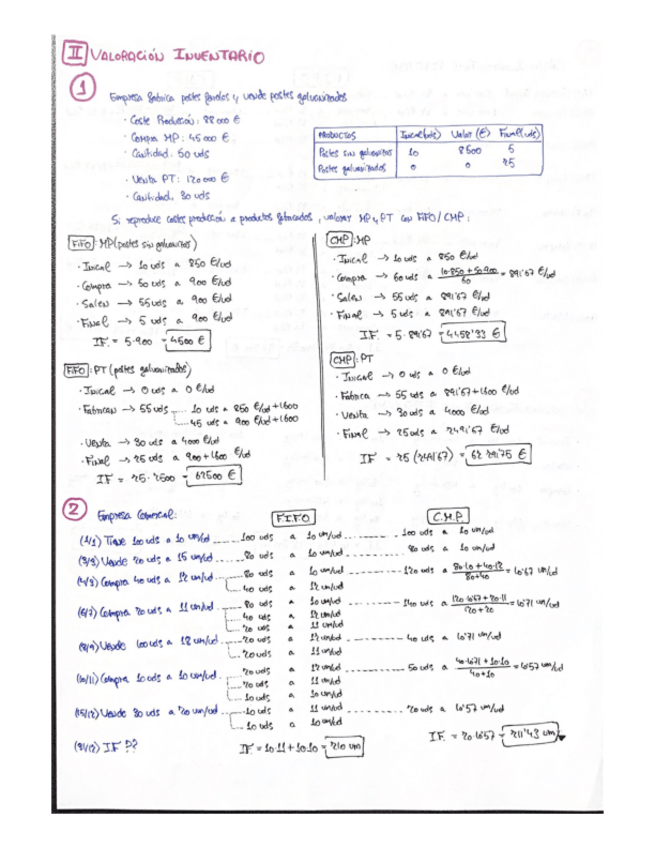 II VALORACIÓN INVENTARIO
1
Empresa fabrica postes farolas y vende postes galvanizados
· Coste Producción: 88000 €
· Compra MP: 45000 €
· Cantidad: 50 uds
· Venta PT: 120000 €
· Cantidad: 30 uds
PRODUCTOS Inicial(uds) Valor (€) Final(uds)
Postes sin galvanizar 10 8500 5
Postes galvanizados 0 0 25
Si reproduce costes producción a productos fabricados, valorar MP y PT con FIFO/CMP:
FIFO: MP (postes sin galvanizar)
· Inicial → 10 uds a 850 €/ud
· Compra → 50 uds a 900 €/ud
· Salen → 55 uds a 900 €/ud
· Final → 5 uds a 900 €/ud
IF = 5·900 = 4500 €
FIFO: PT (postes galvanizados)
· Inicial → 0 uds a 0 €/ud
· Fabrican → 55 uds 10 uds a 850 €/ud +1600
45 uds a 900 €/ud +1600
· Venta → 30 uds a 4000 €/ud
· Final → 25 uds a 900+1600 €/ud
IF = 25·2500 = 62500 €
CMP: MP
· Inicial → 10 uds a 850 €/ud
· Compra → 60 uds a 10·850+50·900/60 = 891'67 €/ud
· Salen → 55 uds a 891'67 €/ud
· Final → 5 uds a 891'67 €/ud
IF = 5·891'67 = 4458'33 €
CMP: PT
· Inicial → 0 uds a 0 €/ud
· Fabrica → 55 uds a 891'67+1600 €/ud
· Venta → 30 uds a 4000 €/ud
· Final → 25 uds a 2491'67 €/ud
IF = 25 (2491'67) = 62.291'75 €
2
Empresa Comercial: F.I.F.O C.M.P.
(1/1) Tiene 100 uds a 10 um/ud 100 uds a 10 um/ud 100 uds a 10 um/ud
(3/3) Vende 20 uds a 15 um/ud 80 uds a 10 um/ud 80 uds a 10 um/ud
(4/3) Compra 40 uds a 12 um/ud 80 uds a 10 um/ud 120 uds a 80·10+40·12/80+40 = 10'67 um/ud
40 uds a 12 um/ud
(6/7) Compra 20 uds a 11 um/ud 80 uds a 10 um/ud 140 uds a 120·10'67+20·11/120+20 = 10'71 um/ud
40 uds a 12 um/ud
20 uds a 11 um/ud
(8/9) Vende 100 uds a 18 um/ud 20 uds a 12 um/ud 40 uds a 10'71 um/ud
20 uds a 11 um/ud
(10/11) Compra 10 uds a 10 um/ud 20 uds a 12 um/ud 50 uds a 40·10'71+10·10/40+10 = 10'57 um/ud
20 uds a 11 um/ud
10 uds a 10 um/ud
(15/12) Vende 30 uds a 20 um/ud 10 uds a 11 um/ud 20 uds a 10'57 um/ud
10 uds a 10 um/ud
(31/12) IF ?? IF = 10·11 + 10·10 = 210 um IF = 20·10'57 = 211'43 um